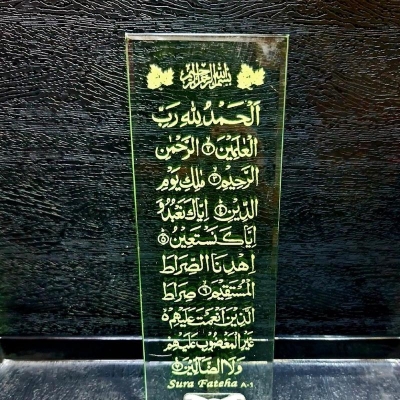 بسم الله الرحمن الرحيم
اَلْحَمْدُ لِلّٰهِ رَبِّ
الْعٰلَمِيْنَ ۱ الرَّحْمٰنِ
الرَّحِيْمِ ۲ مٰلِكِ يَوْمِ
الدِّيْنِ ۳ اِيَّاكَ نَعْبُدُ وَ
اِيَّاكَ نَسْتَعِيْنُ
اِهْدِنَا الصِّرَاطَ
الْمُسْتَقِيْمَ صِرَاطَ
الَّذِيْنَ اَنْعَمْتَ عَلَيْهِمْ
غَيْرِ الْمَغْضُوْبِ عَلَيْهِمْ
وَلَا الضَّآلِّيْنَ
Sura Fateha A-1